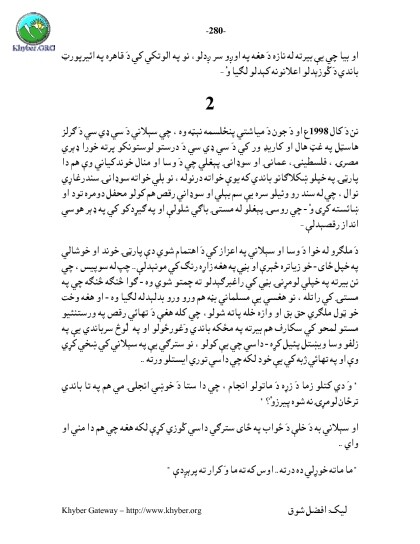 -280-
Khyber.ORG
او بيا چې يې بيرته له نازه دَ هغه په اوږو سر ږدلو ، نو په الوتکې کې دَ قاهره په ائيرپورټ
باندې دَ کُوزېدلو اعلانونه کېدلو لګيا وُ -
2
نن دَ کال 1998ع او دَ جون دَ مياشتې پنځلسمه نېټه وه ، چې سېلانې دَ سي ډي سي دَ ګرلز
هاسټل په غټ هال او کاريډ ور کې دَ سي ډي سي دَ درستو لوستونکو پرته خورا ډېرې
مصرۍ ، فلسطينۍ ، عمانۍ او سوډانۍ پېغلې چې دَ وسا او منال خوندکيانې وې هم دا
پارټۍ په خپلو ښکلاګانو باندې که يوې خواته درنوله ، نو بلې خواته سوډانۍ سندرغاړې
نوال ، چې له سندر رو وئيلو سره يې سم بېلې او سوډانې رقص هم کولو محفل دومره تود او
ښائسته کړی وُ - چې روسۍ پېغلو له مستۍ باګې شلولې او په ګېډکو کې په ډېر هوسي
انداز رقصېدلې -
دَ ملګرو له خوا دَ وسا او سېلانې په اعزاز کې دَ اهتمام شوې دې پارټۍ خوند او خوشالي
په خپل ځای - خو زياتره څېرې او ښې په هغه زاړه رنګ کې موندېدلې .. چپ له سوېيس ، چې
نن بيرته په خپلې لومړنۍ ښې کې راغبرګېدلو ته چمتو شوې وه - ګوا څنګه څنګه چې په
مستۍ کې راتله ، نو هغسې يې مسلمانې بڼه هم ورو ورو بدلېدله لګيا وه - او هغه وخت
خو ټول ملګري حق بق او وازه خله پاته شول ، چې کله هغې دَ تهائي رقص په ورستنئيو
مستو لمحو کې سکارف هم بيرته په مځکه باندې وَغورځولو او په لوڅ سرباندې يې په
زلفو وسا وېښتل پشېل کړه - داسې چې يې کولو ، نو سترګې يې په سېلانې کې ښخې کړې
وې او په تهائي ژبه کې يې خود لکه چې داسې توري ايستلو ورته ..
" وَ دې کتلو زما دَ زړه دَ ماتولو انجام ، چې دا ستا دَ خوښې انجلۍ مې هم په تا باندې
ترڅان لومړۍ نه شوه پېرزو ؟ "
او سېلانې په دَ خلې دَ ځواب په ځای سترګې داسې کُوزې کړې لکه هغه چې هم دا منې او
وايي ..
" ما ماته خوړلې ده درته .. اوس که ته ما وَ کرار ته پرېږدې "
Khyber Gateway – http://www.khyber.org
ليک: افضل شوق